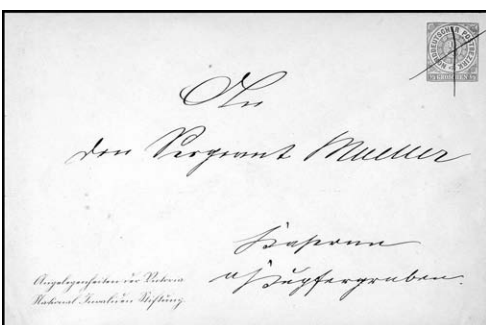 NORDDEUTSCHER POSTBEZIRK
GROSCHEN
An
den Sergeant Mueller
Kaserne
a/Kupfergraben.
Angelegenheiten der Victoria
National Invaliden Stiftung.